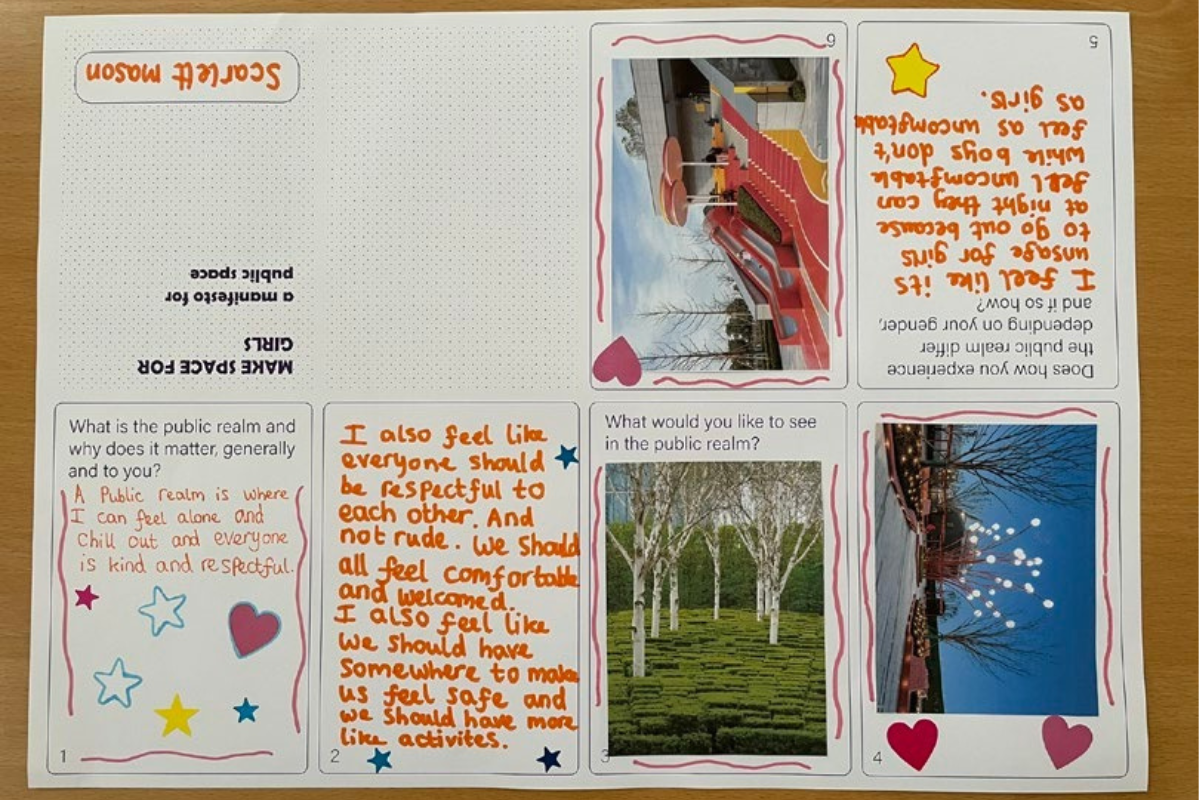 MAKE SPACE FOR
GIRLS
a manifesto for
public space
Scarlett mason
What is the public realm and
why does it matter, generally
and to you?
A Public realm is where
I can feel alone and
Chill out and everyone
is kind and respectful.
1
I also feel like
everyone should
be respectful to
each other. And
not rude. We should
all feel comfortable
and welcomed.
I also feel like
we should have
somewhere to make
us feel safe and
we should have more
like activites.
2
What would you like to see
in the public realm?
3
4
Does how you experience
the public realm differ
depending on your gender,
and if so how?
I feel like its
unsafe for girls
to go out because
at night they can
feel uncomftable
while boys don't
feel as uncomftable
as girls.
5
6